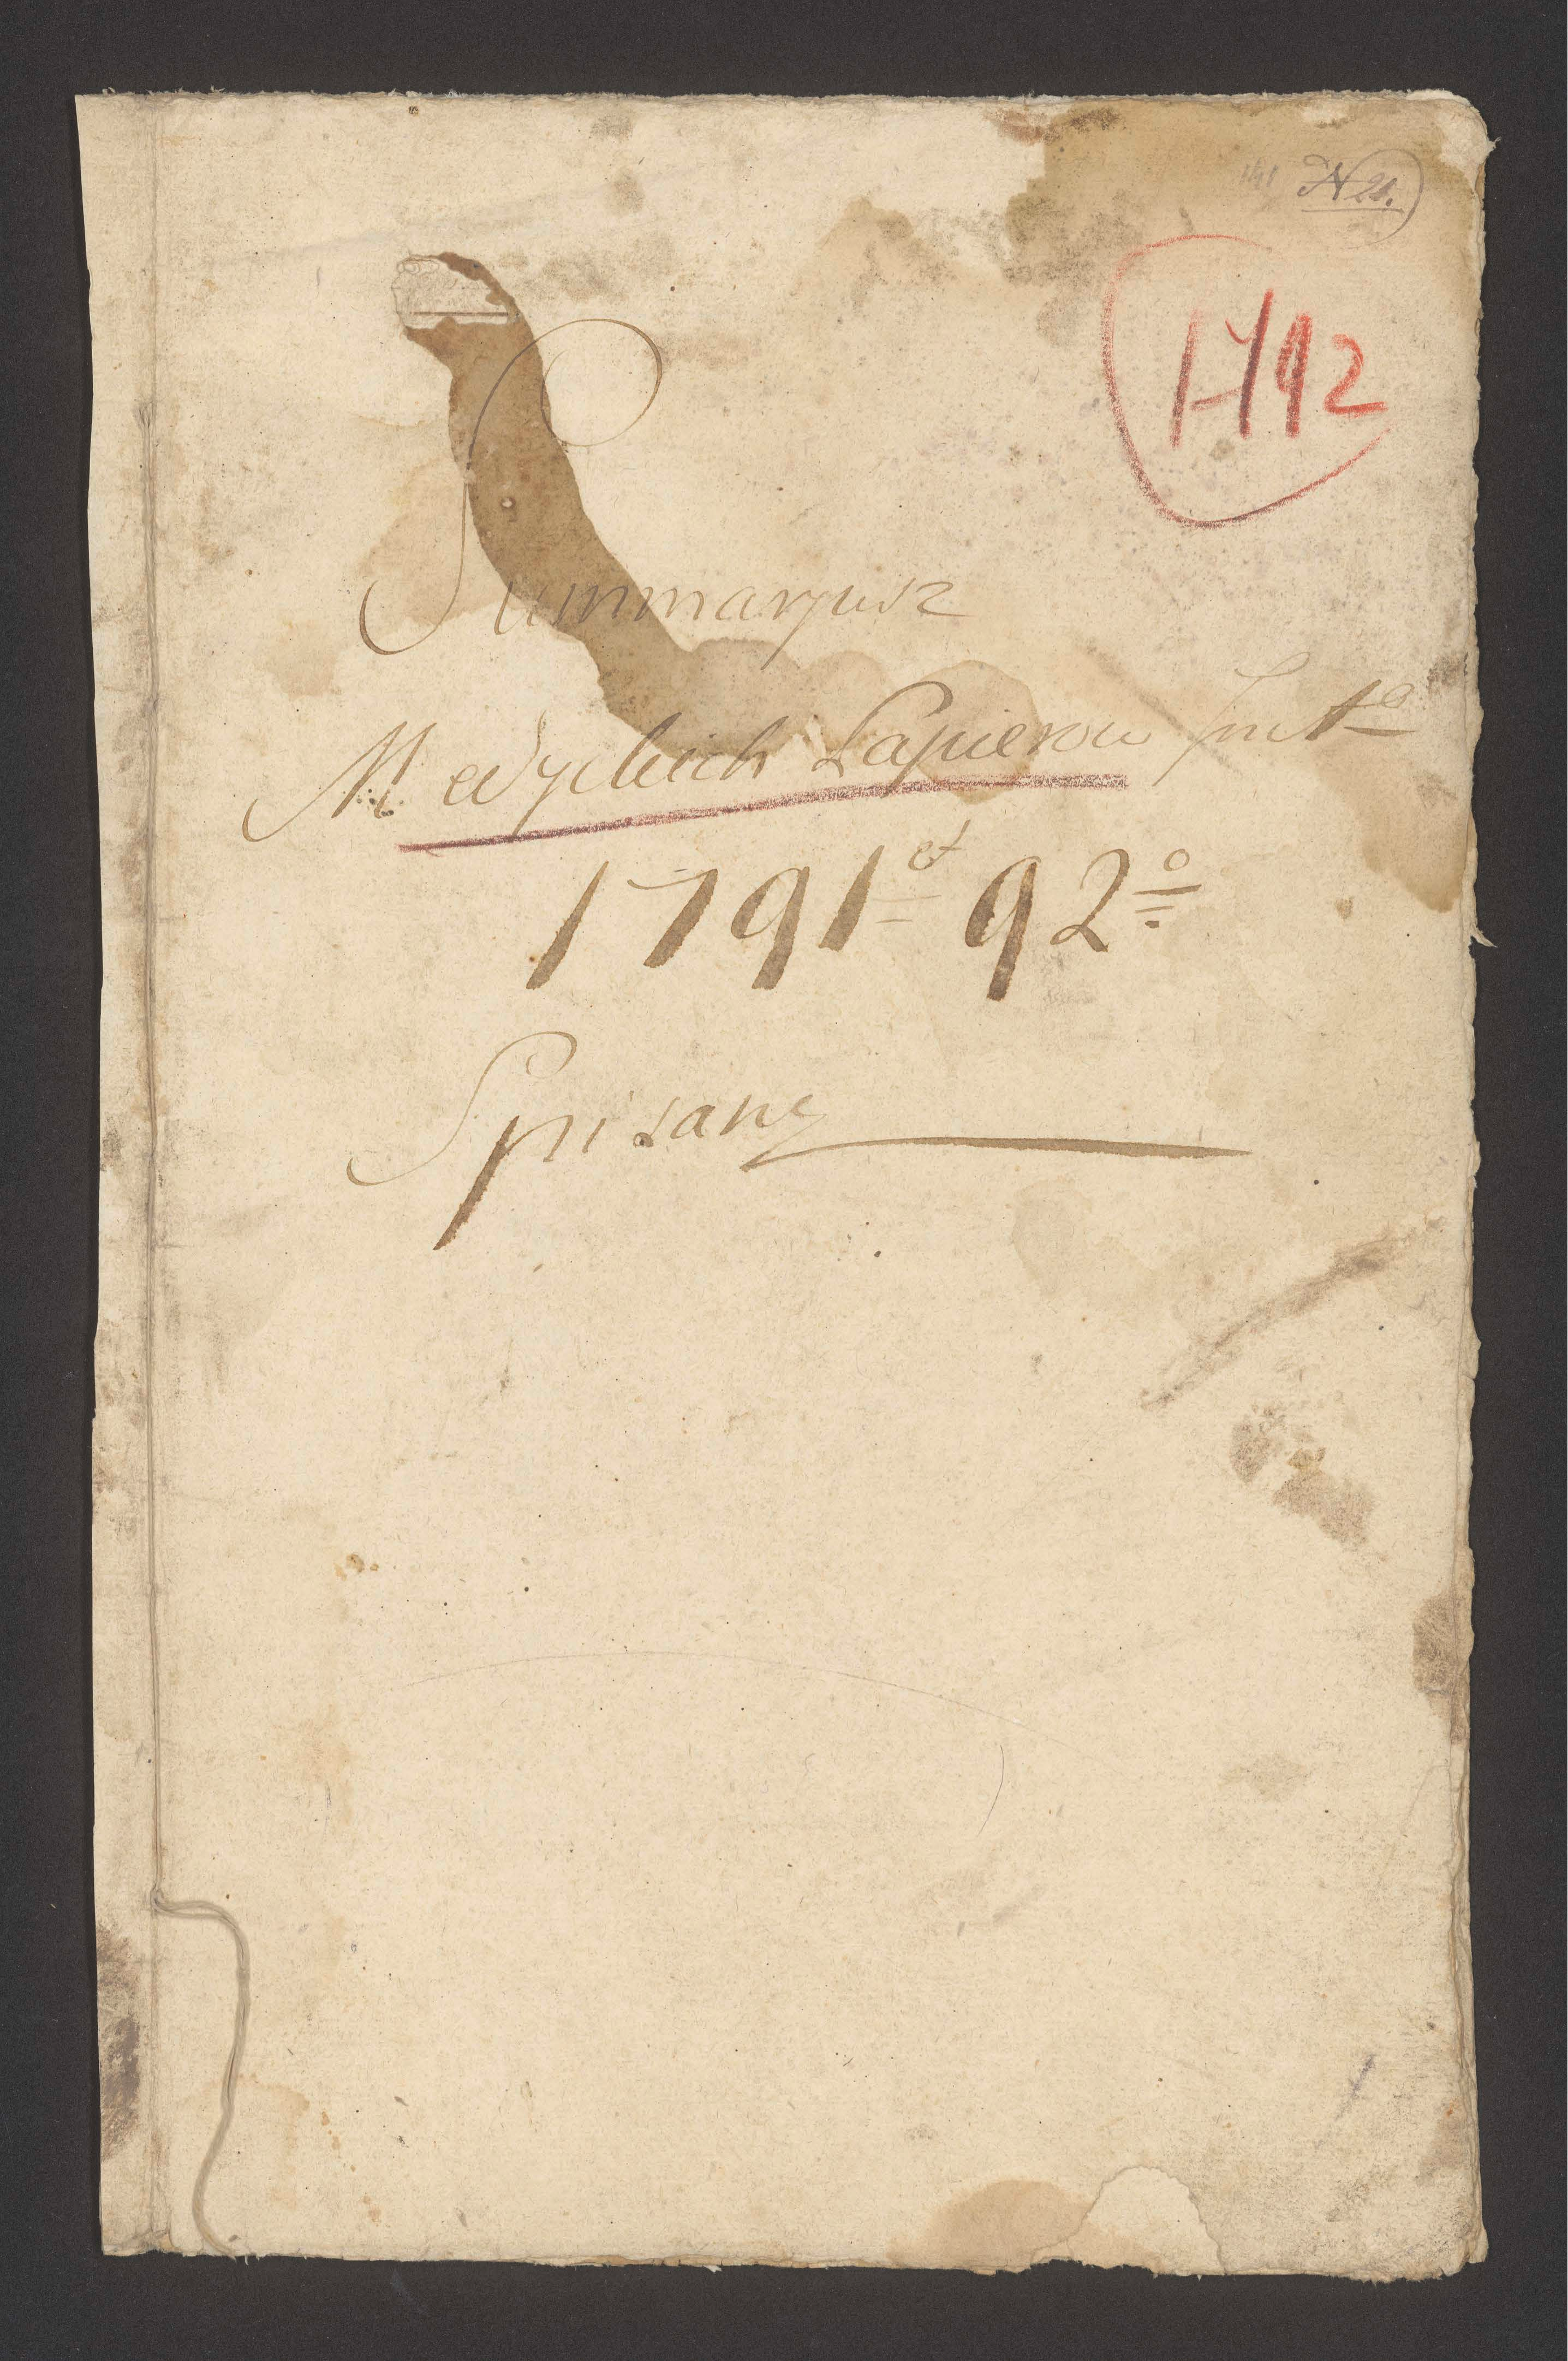 N 21.
1792
Summaryusz
Medyckich Papierow
1791 et 92o
Spisany